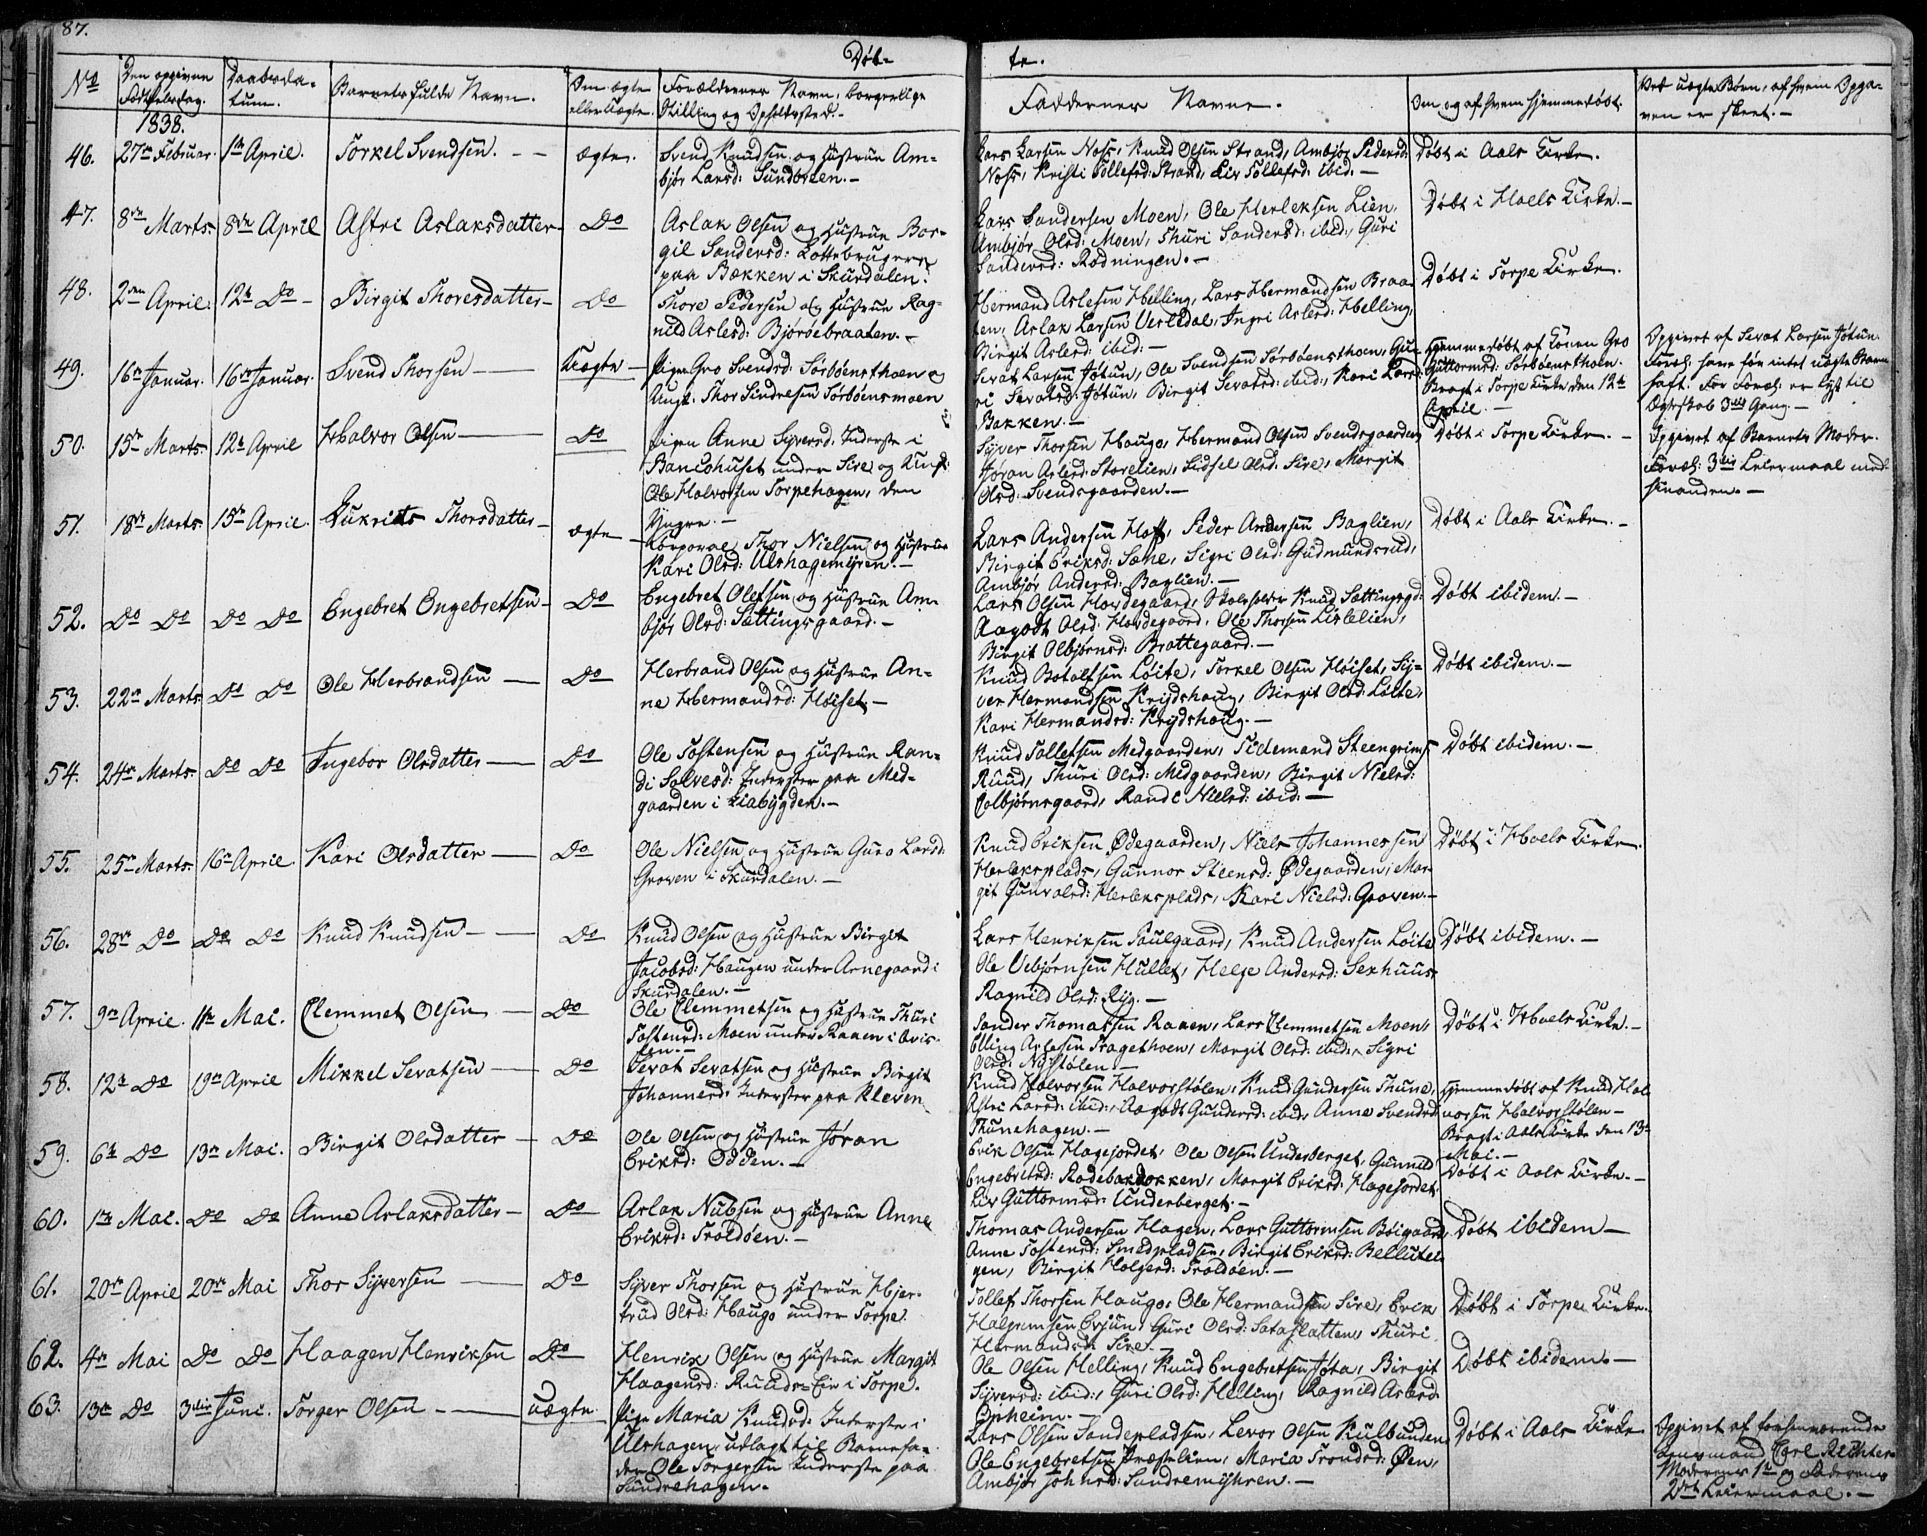 87.
Døb-
te.
No
Den opgivne Fødselsdag.
Daabsda-tum.
Barnets fulde Navn.
Om ægte eller Uægte.
Forældrenes Navn, borgerlige Stilling og Opholdssted.-
Faddernes Navne.
Om og af hvem hjemmedøbt.
Ved uægte Børn, af hvem Opga-
ven er skeet.-
1838.
46. 27de Februar. 1ste April. Torkel Svendsen. ægte.
Svend Knudsen og Hustrue Am-
bjør Larsd: Sundbreen.-
Lars Larsen Noss, Knud Olsen Strand, Ambjør Pedersd:
Noss, Kristi Tollefsd: Strand, Liv Tollefsd: ibid.-
Døbt i Aals Kirke.
47. 8de Marts. 8de April Astri Aslaksdatter Do
Aslak Olsen og Hustrue Bar-
gil Sandersd: Lottebrugere
paa Bækken i Skurdalen.
Lars Sandersen Moen, Ole Herleksen Lien,
Ambjør Olsd: Moen, Thuri Sandersd: ibid:, Guri
Sandersd: Rodningen.-
Døbt i Hoels Kirke.-
48. 2den April. 12te Do Birgit Thoresdatter Do
Thore Pedersen og Hustrue Rag-
nild Aslesd: Bjøröebraaten.-
Hermand Aslesen Helling, Lars Hermandsen Braa-
ten, Aslak Larsen Vestedal, Ingri Aslesd: Helling,
Birgit Aslesd: ibid:-
Døbt i Torpe Kirke.
49. 16de Januar. 16de Januar. Svend Thorsen Uægte
Pige Gro Svendsd: Sørbøensthoen og
Ungk. Thor Sindresen Sørbøensmoen
Sevat Larsen Jøtun, Ole Svendsen Sørbøensthoen, Gu-
ri Sevatsd: Jøtun, Birgit Sevatsd: ibid:, Kari Larsd:
Bakken.-
Hjemmedøbt af Konen Gro
Guttormsd: Sørbøensthoen.
Bragt i Torpe Kirke den 12te
April.-
Opgivet af Sevat Larsen Jøtun.
Foræl: have før intet uægte Barn
haft. For Foræl: er lyst til
Ægteskab 3die Gang.-
50. 15de Marts. 12te April Halvor Olsen Do
Pigen Anne Syversd: Inderste i
Bancohuset under Sire og Ungk:
Ole Halvorsen Torpehagen, den
Yngre.-
Syver Thorsen Haugo, Hermand Olsen Svendsgaarden
Jøran Aslesd: Storelien, Sidsel Olsd: Sire, Margit
Olsd: Svendsgaarden.-
Døbt i Torpe Kirke.-
Opgivet af Barnets Moder.
Foræl: 3die Leiermaal med
hinanden.-
51. 18de Marts. 15de April. Gukrids Thorsdatter ægte
Korporal Thor Nielsen og Hustrue
Kari Olsd: Ulshagemyren.-
Lars Andersen Hoff, Peder Andersen Baglien,
Birgit Eriksd: Sæhe, Sigri Olsd: Gudmundsrud,
Ambjør Andersd: Baglien.-
Døbt i Aals Kirke.-
52. Do Do Do Do Engebret Engebretsen Do
Engebret Olefsen og Hustrue Am-
bjør Olsd: Sættingsgaard.-
Lars Olsen Hovdegaard, Skoleholder Knud Sættingsgd:
Aagodt Olsd: Hovdegaard, Ole Thorsen Lislelien,
Birgit Olbjørnsd: Brattegaard.-
Døbt ibidem.-
53. 22de Marts. Do Do Ole Herbrandsen Do
Herbrand Olsen og Hustrue An-
ne Hermandsd: Høiset.-
Knud Botolfsen Løite, Torkel Olsen Høiset, Sy-
ver Hermandsen Krydshaug, Birgit Olsd: Løite,
Kari Hermandsd: Krydshaug.-
Døbt ibidem.-
54. 24de Marts. Do Do Ingebor Olsdatter Do
Ole Tostensen og Hustrue Ran-
di Solvesd: Inderster paa Med-
gaarden i Liabygden.-
Knud Tollefsen Medgaarden, Tidemand Steengrims
Ruud, Thuri Olsd: Medgaarden, Birgit Nielsd:
Kolbjørnsgaard, Randi Nielsd: ibid:-
Døbt ibidem.-
55. 25de Marts. 16de April Kari Olsdatter Do
Ole Nielsen og Hustrue Guro Larsd:
Groven i Skurdalen.-
Knud Eriksen Ødegaarden, Niels Johannessen
Herleksplads, Gunnor Steensd: Ødegaarden, Mar-
git Gunvalsd: Herleksplads, Kari Nielsd: Groven.-
Døbt i Hoels Kirke.
56. 28de Do Do Do Knud Knudsen Do
Knud Olsen og Hustrue Birgit
Jacobsd: Haugen under Arnegaard i
Skurdalen.-
Lars Henriksen Poulgaard, Knud Andersen Løite
Ole Uebjørnsen Hullet, Helge Andersd: Sexhuus
Ragnild Olsd: Ryg.-
Døbt ibidem.-
57. 9de April. 11te Mai. Clemmet Olsen Do
Ole Clemmetsen og Hustrue Thuri
Tostensd: Moen under Raaen i Øvis-
len.-
Sander Thomassen Raaen, Lars Clemmetsen Moen,
Elling Aslesen Fragethoen, Margit Olsd: ibid:, Sigri
Olsd: Nystølen.-
Døbt i Hoels Kirke.-
58. 12te Do 19de April Mikkel Sevatsen Do
Sevat Sevatsen og Hustrue Birgit
Johannesd: Inderster paa Kleven
Knud Halvorsen Halvorstølen, Knud Gundersen Thune,
Astri Larsd: ibid:, Aagodt Gundersd: ibid, Anne Svendsd:
Thunehagen.-
Hjemmedøbt af Knud Hal-
vorsen Halvorstølen-
Bragt i Aals Kirke den 13de
Mai.-
59. 6te Do 13de Mai. Birgit Olsdatter Do
Ole Olsen og Hustrue Jøran
Eriksd: Odden.-
Erik Olsen Hagejordet, Ole Olsen Underberget, Gunnild
Engebretsd: Rodebakbakken, Margit Eriksd: Hagejordet
Liv Guttormsd: Underberget.-
Døbt i Aals Kirke.-
60. 1ste Mai. Do Do Anne Aslaksdatter Do
Aslak Nubsen og Hustrue Anne
Eriksd: Troldøen.-
Thomas Andersen Hagen, Lars Guttormsen Bøigaard,
Anne Tostensd: Smedpladsen, Birgit Eriksd: Belluteigen,
gen, Birgit Holgersd: Troldøen.-
Døbt ibidem-
61. 20de April 20de Mai Thor Syversen Do
Syver Thorsen og Hustrue Hjer-
trud Olsd: Haugo under Torpe.
Tollef Thorsen Haugo, Ole Hermandsen Sire, Erik
Halgrimsen Evjun, Guri Olsd: Sataslatten, Thuri
Hermandsd: Sire.-
Døbt i Torpe Kirke.
62. 4de Mai Do Do Haagen Henriksen Do
Henrik Olsen og Hustrue Margit
Haagensd: Ruuds-Eie i Torpe.
Ole Olsen Helling, Knud Engebretsen Jøta, Birgit
Syversd: ibid:, Guri Olsd: Helling, Ragnild Aslesd:
Opheim.-
Døbt ibidem.-
63. 13de Do 3die Juni. Torger Olsen uægte.
Pige Maria Knudsd: Inderste i
Ulshagen, udlagt til Barnefa-
der Ole Torgersen Inderste paa
Sundrehagen.
Lars Olsen Sandepladsen, Levor Olsen Kulbunden
Ole Engebretsen Præstelien, Maria Trondsd: Øen,
Ambjør Johnsd: Sundremyhren.-
Døbt i Aals Kirke
Opgivet af forhenværende
Lensmand Carl Richter.
Moderens 1te og Faderens
2det Leiermaal.-